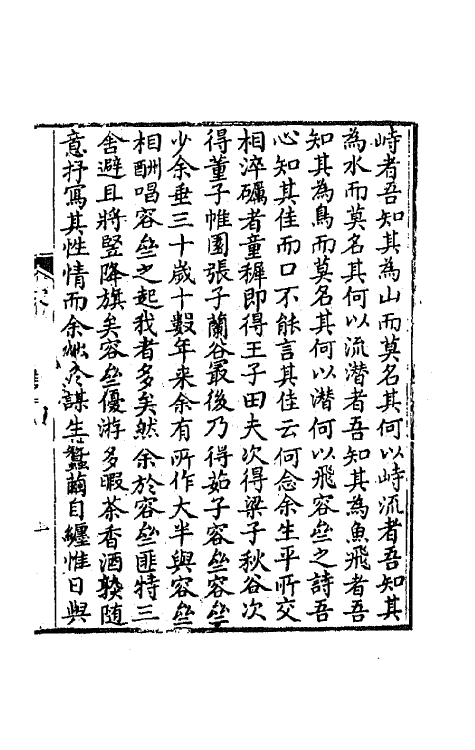 峙者吾知其為山而莫名其何以峙流者吾知其
為水而莫名其何以流潜者吾知其為魚飛者吾
知其為鳥而莫名其何以潜何以飛容垒之詩吾
心知其佳而口不能言其佳云何念余生平所交
相淬礪者童穉即得王子田夫次得梁子秋谷次
得董子帷園張子蘭谷最後乃得茹子容垒容垒
少余垂三十歲十數年来余有所作大半與容垒
相酬唱容垒之起我者多矣然余於容垒匪特三
舍避且將豎降旗矣容垒優游多暇茶香酒熟随
意抒寫其性情而余謀生蠶繭自纏惟日與